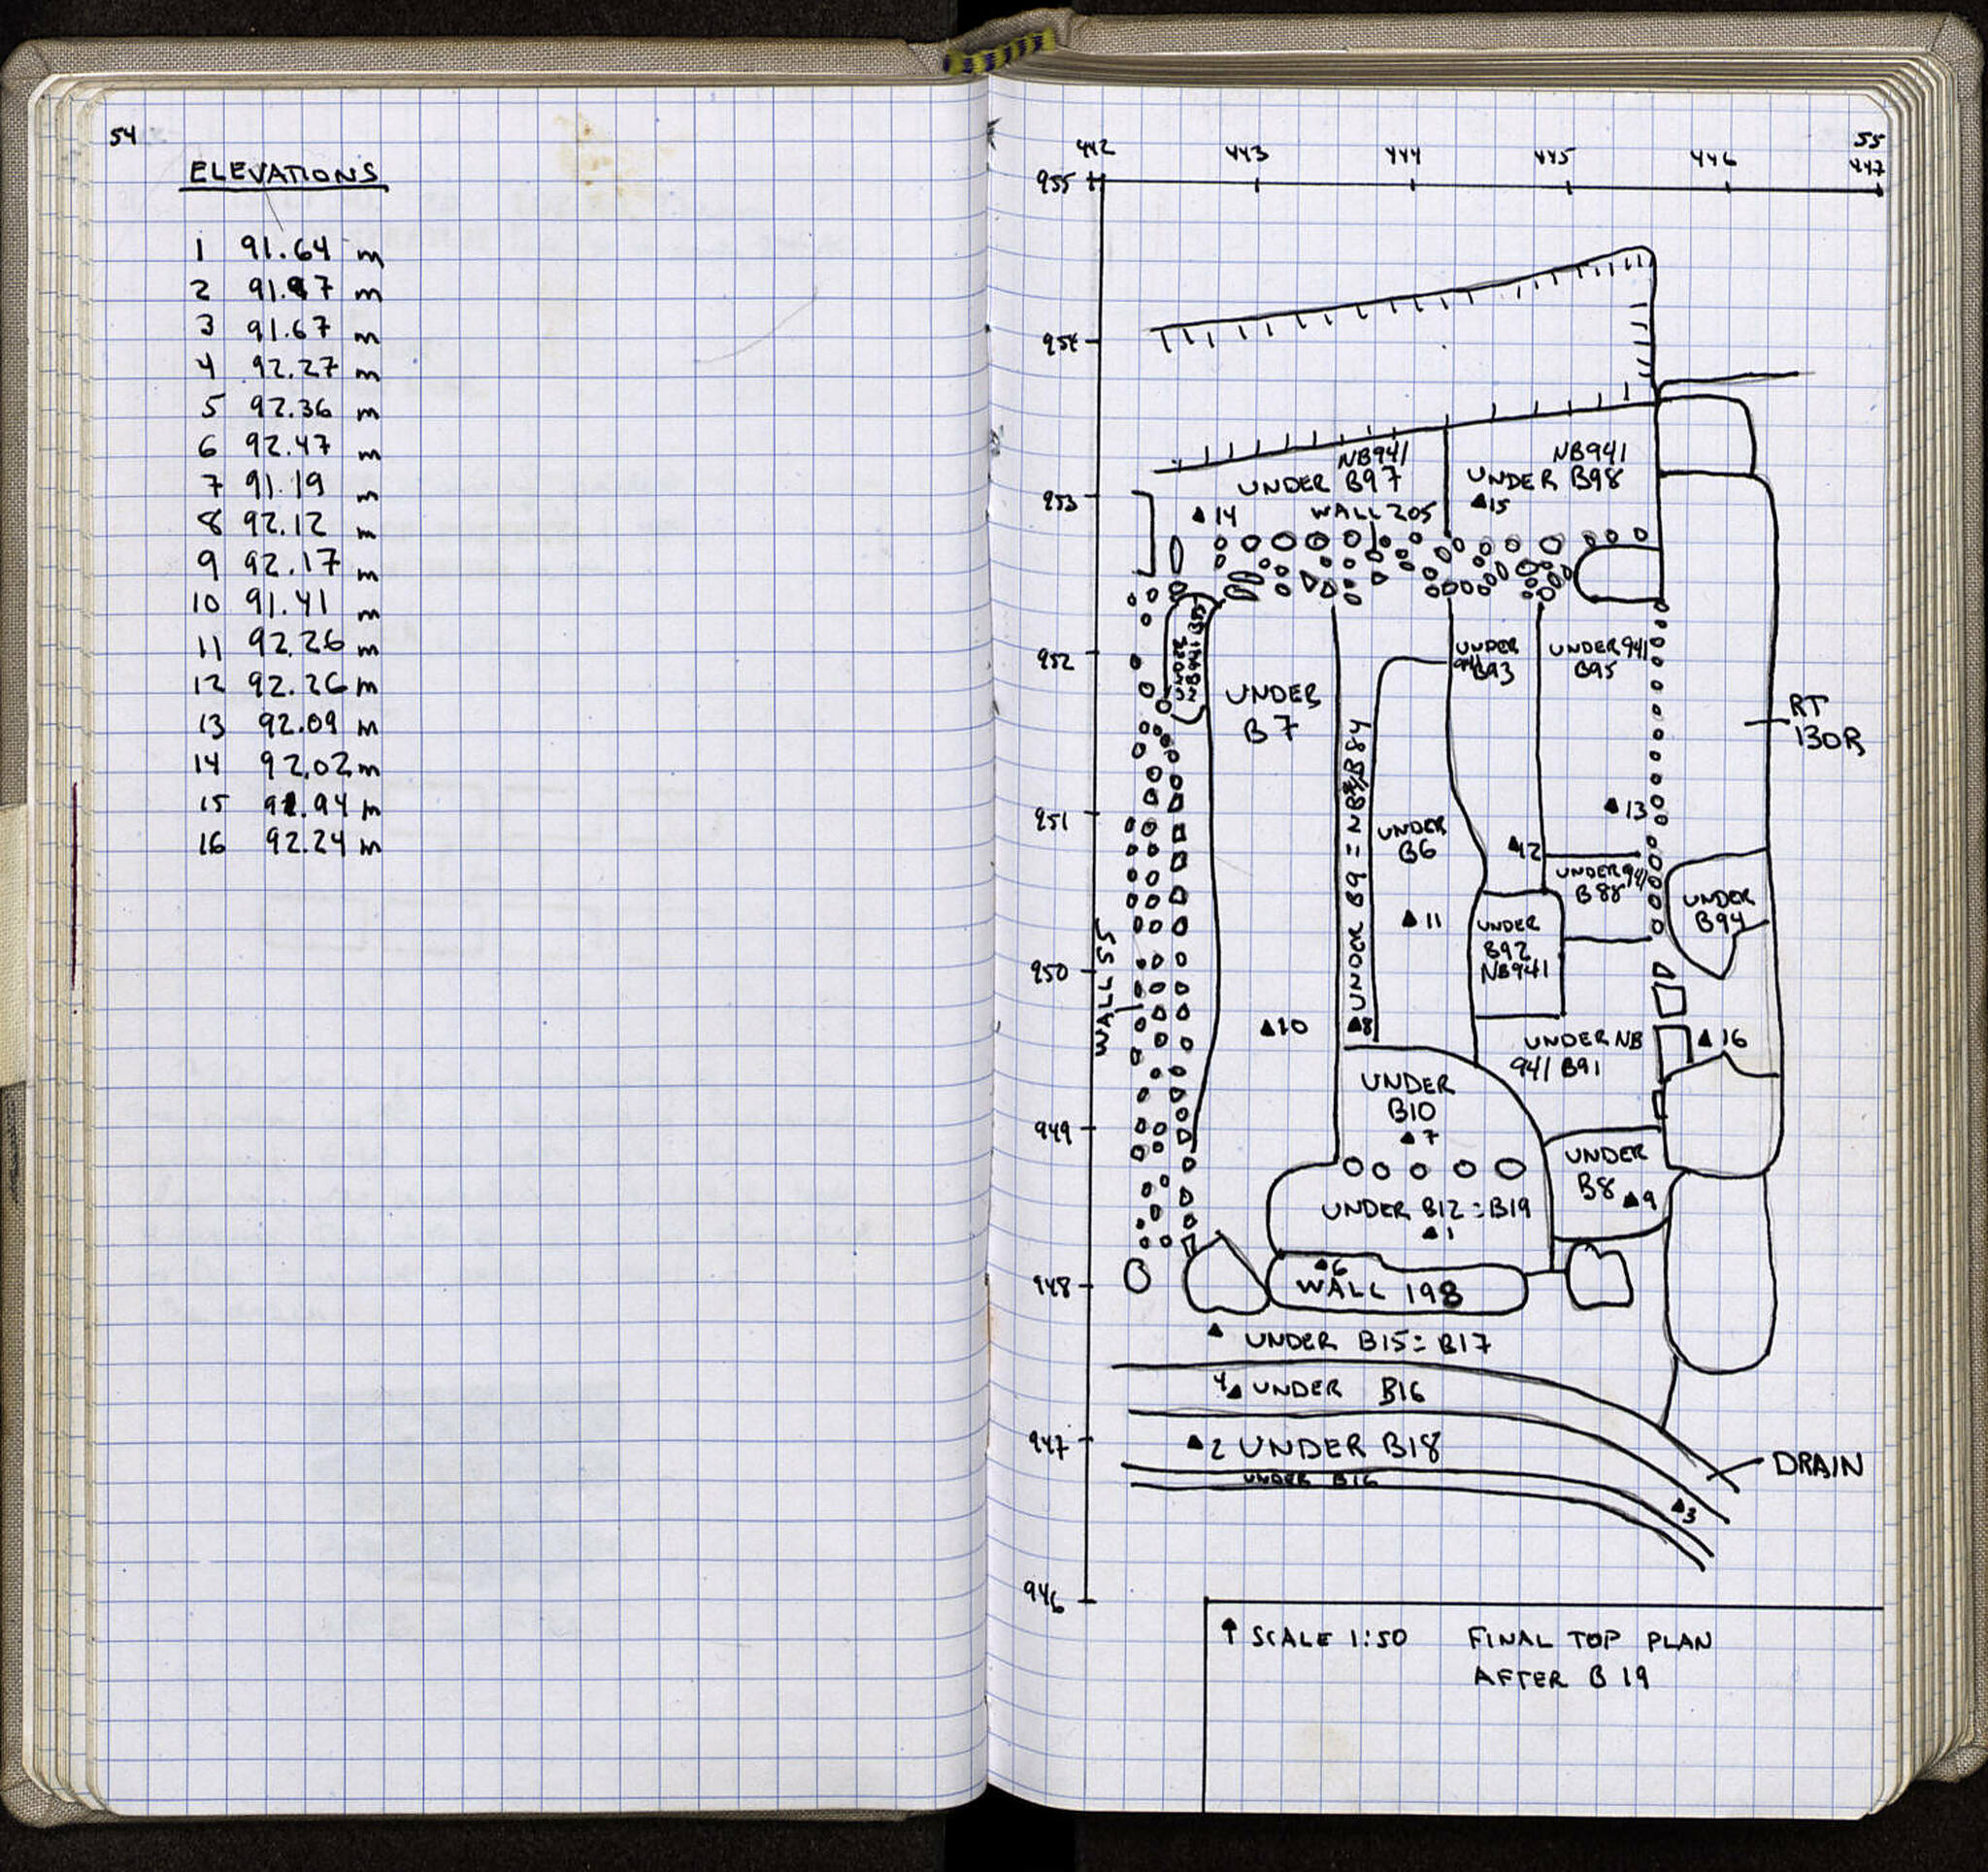 54
ELEVATIONS
1 91.64 m
2 91.97 m
3 91.67 m
4 92.27 m
5 92.36 m
6 92.47 m
7 91.19 m
8 92.12 m
9 92.17 m
10 91.41 m
11 92.26 m
12 92.26 m
13 92.09 m
14 92.02 m
15 91.94 m
16 92.24 m
55
442 443 444 445 446 447
955
954
953
952
951
950
949
948
947
946
NB941
UNDER B97
NB941
UNDER B98
▲14
WALL 205
▲15
UNDER
NB941 B99
UNDER
B7
UNDER
941
B93
UNDER 941
B95
RT
130R
UNDER B9 = NB941 B84
UNDER
B6
▲12
▲13
UNDER 941
B88
UNDER
B94
▲11
UNDER
B92
NB941
WALL 55
▲10
▲8
UNDER NB
941 B91
▲16
UNDER
B10
▲7
UNDER
B8 ▲9
UNDER B12 = B19
▲1
▲6
WALL 198
▲ UNDER B15 = B17
4▲ UNDER B16
▲2 UNDER B18
UNDER B16
DRAIN
▲3
↑ SCALE 1:50 FINAL TOP PLAN
AFTER B 19